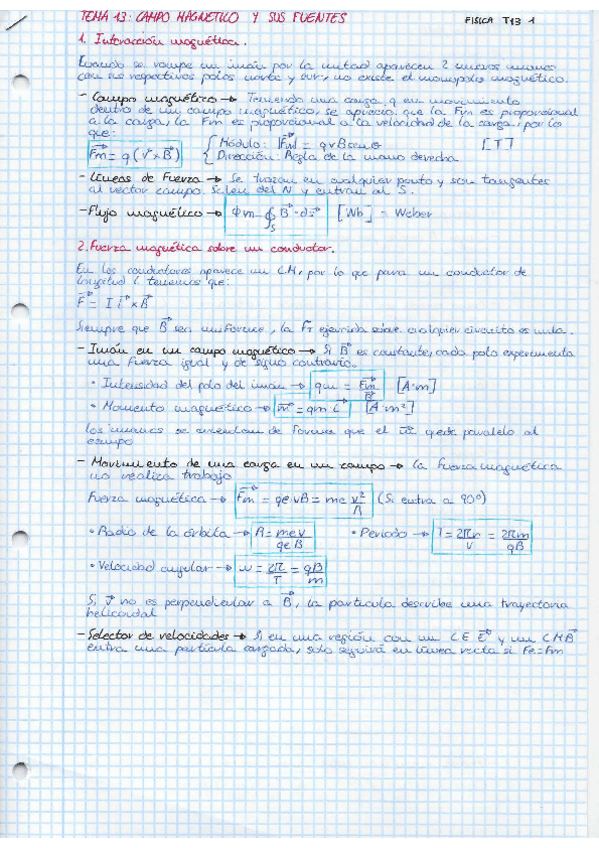 TEMA 13: CAMPO MAGNETICO Y SUS FUENTES
FISICA T13 1
1. Interacción magnética.
Cuando se rompe un imán por la mitad aparecen 2 nuevos imanes
con sus respectivos polos norte y sur, no existe el monopolo magnético.
- Campo magnético → Teniendo una carga q en movimiento
dentro de un campo magnético, se aprecia que la Fm es proporcional
a la carga, la Fm es proporcional a la velocidad de la carga, por lo
que:
Fm = q(v×B)
{ Módulo: |Fm| = qvBsenθ [T]
Dirección: Regla de la mano derecha
- Líneas de Fuerza → Se trazan en cualquier punto y son tangentes
al vector campo. Salen del N y entran al S.
- Flujo magnético → Φm = ∮s B·ds [Wb] = Weber
2. Fuerza magnética sobre un conductor.
En los conductores aparece un CM, por lo que para un conductor de
longitud l tenemos que:
F = I l × B
Siempre que B sea uniforme, la FT ejercida sobre cualquier circuito es nula.
- Imán en un campo magnético → Si B es constante, cada polo experimenta
una fuerza igual y de signo contrario.
• Intensidad del polo del imán → qm = Fm/B [A·m]
• Momento magnético → m = qm L [A·m²]
Los imanes se orientan de forma que el m quede paralelo al
campo
- Movimiento de una carga en un campo → La fuerza magnética
no realiza trabajo
Fuerza magnética → Fm = qe·vB = me v²/R (Si entra a 90º)
• Radio de la órbita → R = me v/qe B • Periodo → T = 2πr/v = 2πm/qB
• Velocidad angular → ω = 2π/T = qB/m
Si v no es perpendicular a B, la partícula describe una trayectoria
helicoidal
- Selector de velocidades → Si en una región con un CE E y un CM B
entra una partícula cargada, solo seguirá en línea recta si Fe=Fm